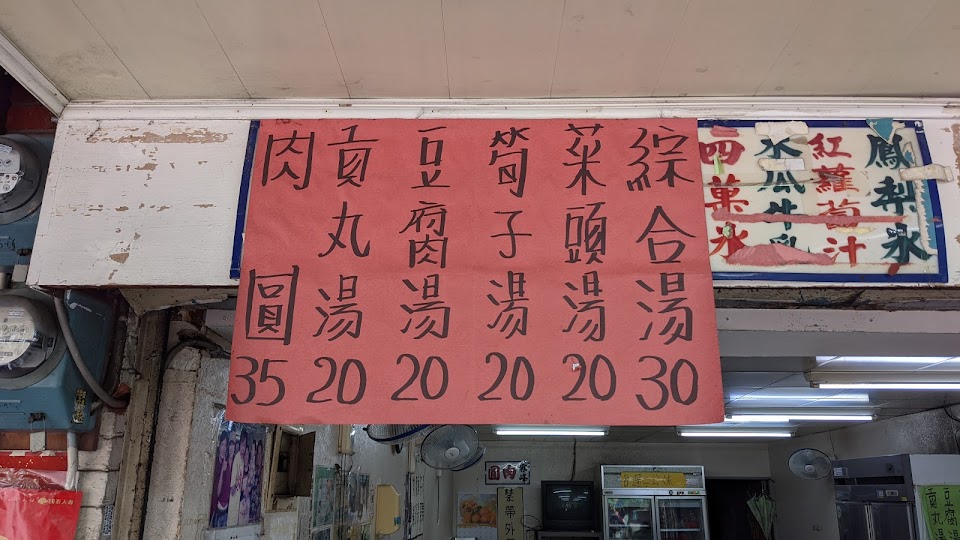 肉圓 35
貢丸湯 20
豆腐湯 20
筍子湯 20
菜頭湯 20
綜合湯 30
四菓冰
木瓜牛乳
紅蘿蔔汁
鳳梨冰
肉圓
禁帶外
豆腐湯
貢丸湯